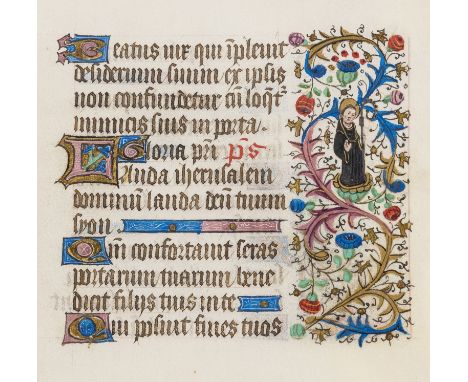 Beatus vir qui īplevit
desiderium suum ex ipsis
non confundetur cū loqt̄
inimicis suis in porta.
Gloria pri. ps
Lauda iherusalem
dominū lauda deū tuum
syon
Qm̄ confortavit seras
portarum tuarum bene
dixit filijs tuis in te
Qui posuit fines tuos